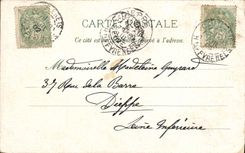 CARTE POSTALE
Ce côté est exclusivement réservé à l'adresse
Mademoiselle Madeleine
37 Rue de la Barre
Dieppe
Seine Inférieure